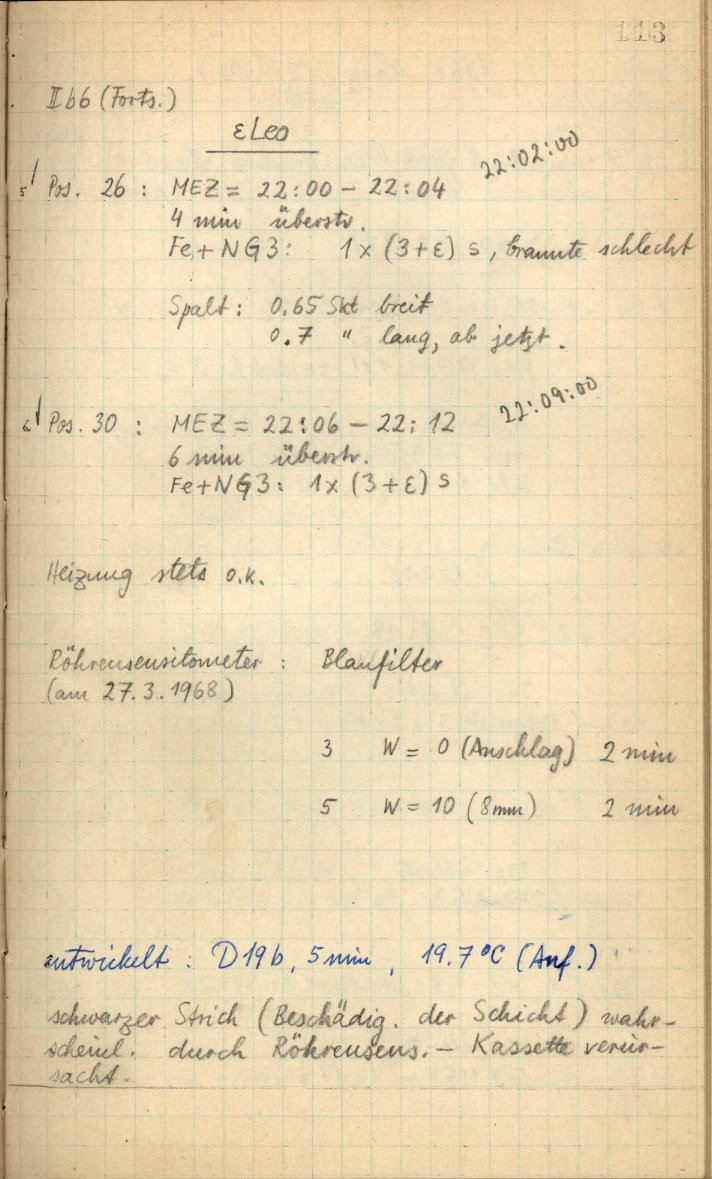 113
II b6 (Forts.)
ε Leo
22:02:00
5' Pos. 26 : MEZ = 22:00 – 22:04
4 min überstr.
Fe + NG3: 1 x (3+ε) s, brannte schlecht
Spalt: 0.65 Skt breit
0.7 " lang, ab jetzt.
22:09:00
6' Pos. 30 : MEZ = 22:06 – 22:12
6 min überstr.
Fe+NG3: 1x (3+ε) s
Heizung stets o.k.
Röhrensensitometer : Blaufilter
(am 27.3.1968)
3 W = 0 (Anschlag) 2 min
5 W = 10 (8mm) 2 min
entwickelt : D19b, 5 min, 19.7°C (Anf.)
schwarzer Strich (Beschädig. der Schicht) wahr-
scheinl. durch Röhrensens.– Kassette verur-
sacht.